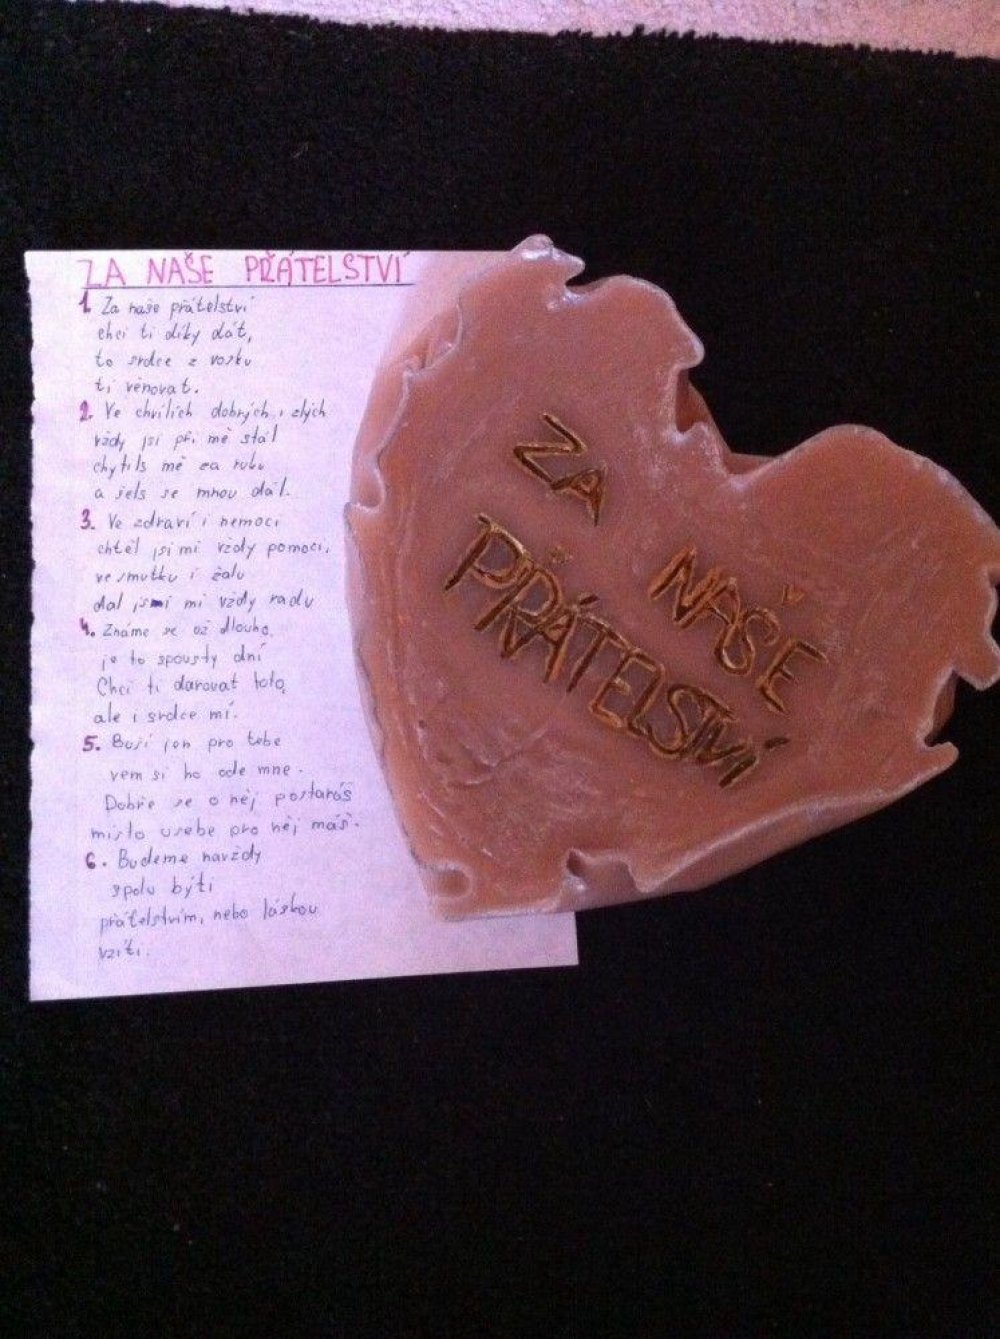 ZA NAŠE PŘÁTELSTVÍ
1. Za naše přátelství
chci ti díky dát,
to srdce z vosku
ti věnovat.
2. Ve chvílích dobrých i zlých
vždy jsi při mě stál
chytils mě za ruku
a šels se mnou dál.
3. Ve zdraví i nemoci
chtěl jsi mi vždy pomoci,
ve smutku i žalu
dal jsmi mi vždy radu
4. Známe se už dlouho,
je to spousty dní
Chci ti darovat toto,
ale i srdce mí.
5. Buší jen pro tebe
vem si ho ode mne.
Dobře se o něj postaráš
místo u sebe pro něj máš.
6. Budeme navždy
spolu býti
přátelstvím, nebo láskou
vzíti.
ZA NAŠE
PŘÁTELSTVÍ